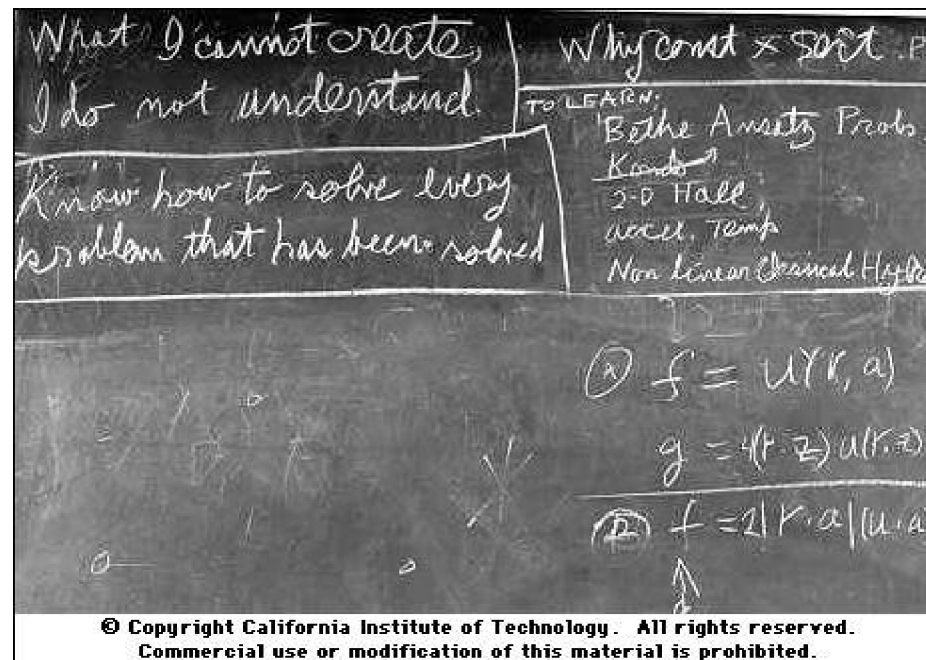 What I cannot create,
I do not understand.
Know how to solve every
problem that has been solved
Why const × sort . P
TO LEARN:
Bethe Ansatz Probs.
Kondo
2-D Hall
accel. Temp
Non Linear Classical Hydro
Ⓐ f = u(r, a)
g = 4(r·z) u(r, z)
f = 2|r·a|(u·a
© Copyright California Institute of Technology. All rights reserved.
Commercial use or modification of this material is prohibited.